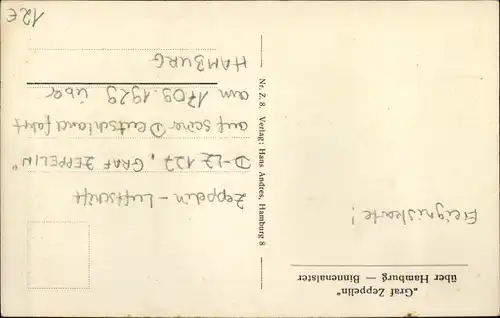 „Graf Zeppelin"
über Hamburg — Binnenalster
Ereigniskarte!
Nr. Z. 8. Verlag: Hans Andres, Hamburg 8
Zeppelin - Luftschiff
D-LZ 127, GRAF ZEPPELIN"
auf seiner Deutschlandfahrt
am 1709.1929 über
HAMBURG
12€